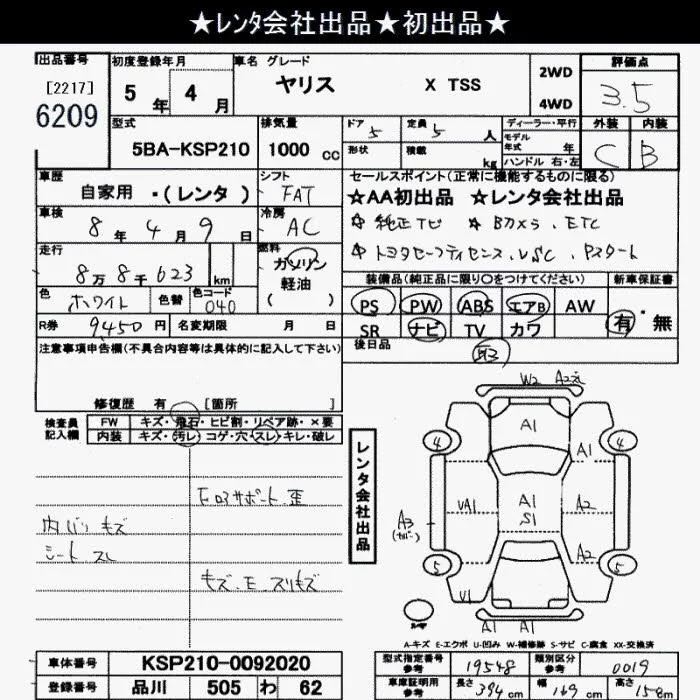 ★レンタ会社出品★初出品★
出品番号 初度登録年月 車名 グレード 評価点
[2217] 6209 5年 4月 ヤリス X TSS 2WD 4WD 3.5
型式 排気量 ドア 定員 ディーラー・平行 外装 内装
5BA-KSP210 1000 cc 5 5人 モデル年式 年 C B
形状 積載 kg ハンドル 右・左
車歴 シフト セールスポイント(正常に機能するものに限る)
自家用 ・(レンタ) FAT ☆AA初出品 ☆レンタ会社出品
車検 冷房 ☆純正TV ☆Bカメラ、ETC
8年 4月 9日 AC
走行 燃料 ☆トヨタセーフティセンス、VSC、Pスタート
8万8千623 km ガソリン 軽油 ( )
装備品(純正品に限り○をつけてください) 新車保証書
色 色替 色コード PS PW ABS エアB AW 有・無
ホワイト 040 SR ナビ TV カワ
R券 9450円 名変期限 月 日 後日品
注意事項申告欄(不具合内容等は具体的に記入して下さい)
修復歴 有 [箇所 ]
検査員記入欄 FW キズ・飛石・ヒビ割・リペア跡・×要
内装 キズ・汚レ・コゲ・穴・スレ・キレ・破レ
レンタ会社出品
内バリ キズ
シート スレ
W2
A1
A1
4 4
VA1 A1 S1 A2
A3
A2
5 5
V1
A1 A1
A-キズ E-エクボ U-凹み W-補修跡 S-サビ C-腐食 XX-交換済
車体番号 KSP210-0092020 型式指定番号 参考 19548 類別区分 参考 0019
登録番号 品川 505 わ 62 車庫証明用 参考 長さ 394 cm 幅 169 cm 高さ 158 cm